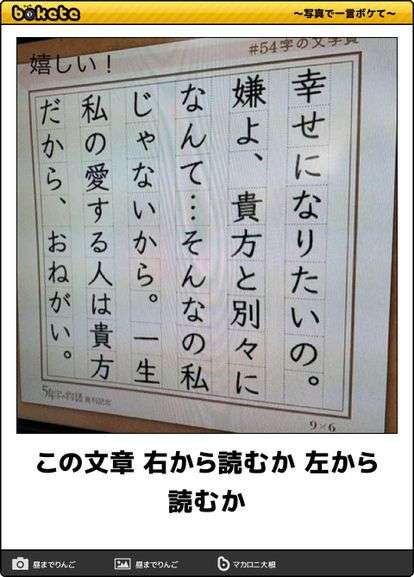 bokete
〜写真で一言ボケて〜
#54字の文学賞
嬉しい！
幸せになりたいの。
嫌よ、貴方と別々に
なんて…そんなの私
じゃないから。一生
私の愛する人は貴方
だから、おねがい。
54字の物語
9×6
この文章 右から読むか 左から
読むか
昼までりんご
昼までりんご
マカロニ大根